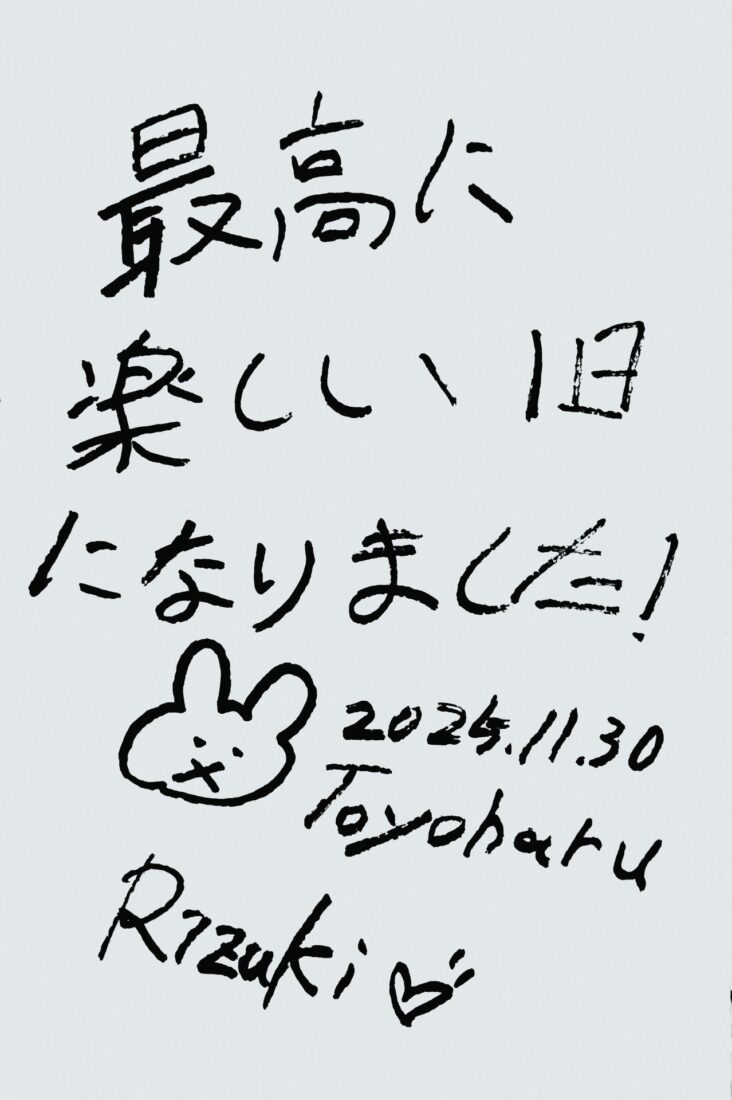 最高に
楽しい旧
になりました!
2025.11.30
Toyoharu
Rizuki